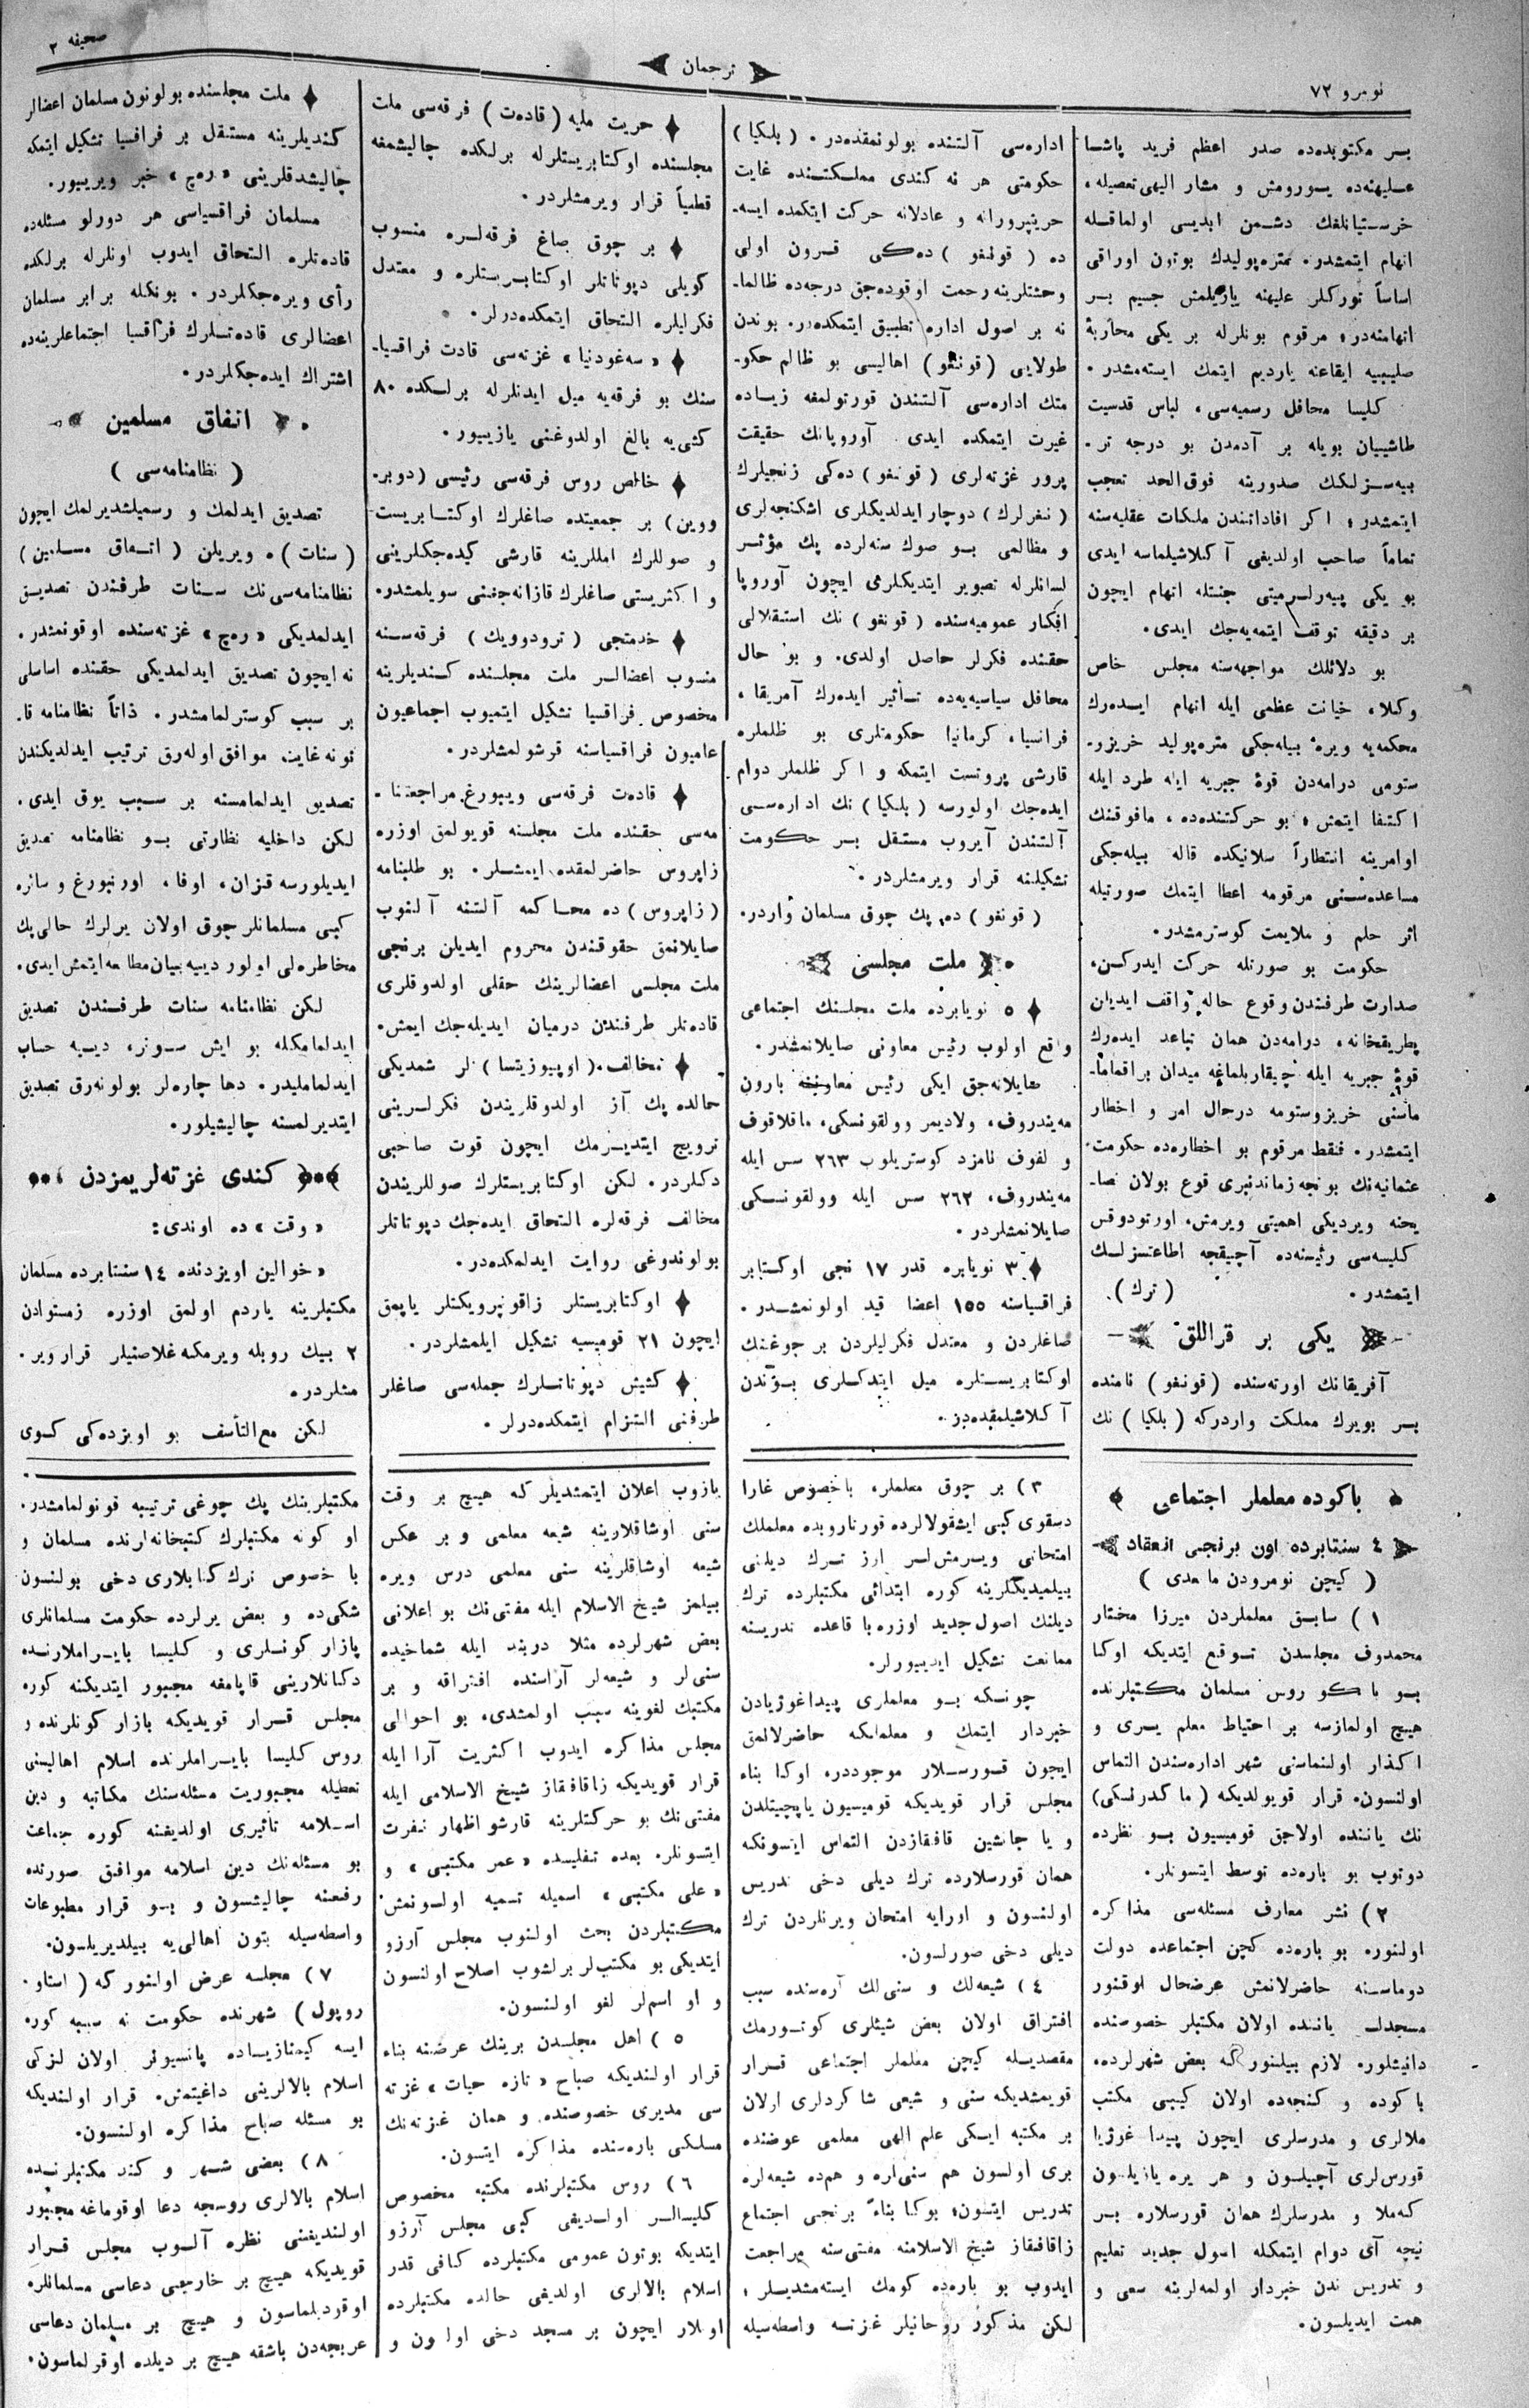 نومرو ٧٢
ترجمان
صحیفه ٢
بـر مكتوبده‌ده صدر اعظم فرید پاشـا
علیهنه‌ده یـورومش و مشار الیهی تعصیله،
خرستیانلغك دشمن ابدیسی اولماقـله
اتهام ایتمشدر. متره‌پولیدك بوتون اوراقی
اساساً توركلر علیهنه یازیلمش جسیم بـر
اتهامنه‌در؛ مرقوم بونلرله بر یكی محاربهٔ
صلیبیه ایقاعنه یاردیم ایتمك ایسته‌مشدر.
كلیسا محافل رسمیه‌سی، لباس قدسیت
طاشییان بویله بر آدمدن بو درجه تر.
بیه‌سـزلكك صدورینه فوق‌الحد تعجب
ایتمشدر؛ اكر افاداتندن ملكات عقلیه‌سنه
تماماً صاحب اولدیغی آكلاشیلماسه ایدی
بو یكی پیه‌رلرمیتی جنتله اتهام ایچون
بر دقیقه توقف ایتمه‌یه‌جك ایدی.
بو دلائلك مواجهه‌سنه مجلس خاص
وكلاء خیانت عظمی ایله اتهام ایـده‌رك
محكمه‌یه ویره بیله‌جكی متره‌پولید خریزو.
ستومی درامه‌دن قوهٔ جبریه ایله طرد ایله
اكتفا ایتمش؛ بو حركتنده‌ده، مافوقنك
اوامرینه انتظاراً سلانیكده قاله بیله‌جكی
مساعده‌سـنی مرقومه اعطا ایتمك صورتیله
اثر حلم و ملایمت كوسترمشدر.
حكومت بو صورتله حركت ایدركن،
صدارت طرفندن وقوع حاله واقف ایدیان
پطریقخانه، درامه‌دن همان تباعد ایده‌رك
قوهٔ جبریه ایله چیقاریلماغه میدان براقماما.
ماسنی خریزوستومه درحال امر و اخطار
ایتمشدر. فنقط مرقوم بو اخطاره‌ده حكومت
عثمانیه‌نك بونجه زماندنبری قوع بولان نصا.
یحنه ویردیكی اهمیتی ویرمش، اورتودوقس
كلیسه‌سی رئیسنه‌ده آچیقجه اطاعتسزلـك
ایتمشدر. (ترك).
یكی بر قراللق
آفریقانك اورته‌سنده (قونغو) نامنده
بـر بویرك مملكت واردركه (بلكیا) نك
اداره‌سی آلتنده بولونمقده‌در. (بلكیا)
حكومتی هر نه كندی مملـكتـنده غایت
حریتپرورانه و عادلانه حركت ایتكمده ایسه.
ده (قونغو) ده‌كی قـرون اولی
وحشتلرینه رحمت اوقوده‌جق درجه‌ده ظالما.
نه بر اصول اداره تطبیق ایتمكده‌در. بوندن
طولایی (قونغو) اهالیسی بو ظالم حكو.
متك اداره‌سی آلتندن قورتولمغه زیـاده
غیرت ایتمكده ایدی. آوروپانك حقیقت
پرور غزته‌لری (قونغو) ده‌كی زنجیلرك
(نغرلرك) دوچار ایدلدیكلری اشكنجه‌لری
و مظالمی بـو صوك سنه‌لرده پك مؤثـر
لسانلرله تصویر ایتدیكلرمی ایچون آوروپا
افكار عمومیه‌سنده (قونغو) نك استقلالی
حقنده فكرلر حاصل اولدی. و بو حال
محافل سیاسیه‌یه‌ده تـأثیر ایده‌رك آمریقا،
فرانسیا، كرمانیا حكومتلری بو ظلملره
قارشی پروتست ایتمكه و اكر ظلملر دوام
ایده‌جك اولورسه (بلكیا) نك اداره‌سـی
آلـتندن آیروب مستقـل بـر حكـومت
تشكیلنه قرار ویرمشلردر.
(قونغو) ده پك چوق مسلمان واردر.
ملت مجلسی
٥ نویابرده ملت مجلسنك اجتماعی
واقع اولوب رئیس معاونی صایلانمشدر.
صایلانه‌جق ایكی رئیس معاوننه بارون
مه‌یندروف، ولادیمر وولقونسكی، ماقلاقوف
و لفوف نامزد كوستریلوب ٢٦٣ سس ایله
مه‌یندروف، ٢٦٢ سس ایله وولقونسـكی
صایلانمشلردر.
٣ نویابره قدر ١٧ نجی اوكتابر
فراقسیاسنه ١٥٥ اعضا قید اولونمشـدر.
صاغلردن و معتدل فكرلیلردن بر چوغنك
اوكتابریسـتلره میل ایتدكـلری بـوندن
آكلاشیلمقده‌در.
حریت ملیه (قاده‌ت) فرقه‌سی ملت
مجلسنده اوكتابریستلرله برلكده چالیشمغه
قطعیاً قرار ویرمشلردر.
بر چوق صاغ فرقه‌لـره منسوب
كویلی دپوتاتلر اوكتابـرستلره و معتدل
فكرلیلره التحاق ایتمكده‌درلر.
«سه‌غودنیا» غزته‌سی قادت فراقسیا.
سنك بو فرقه‌یه میل ایدنلرله برلـكده ٨٠
كشی‌یه بالغ اولدوغنی یازیبیور.
خالص روس فرقه‌سی رئیسی (دوبر.
ووین) بر جمعیتده صاغلرك اوكتـابریست
و صوللرك امللرینه قارشی كیده‌جكلرینی
و اكثریستی صاغلرك قازانه‌جغنی سویلمشدر.
خدمتچی (ترودوویك) فرقه‌سـنه
منسوب اعضالـر ملت مجلسنده كـندیلرینه
مخصوص فراقسیا تشكیل ایتمیوب اجماعیون
عامیون فراقسیاسنه قرشولمشلردر.
قاده‌ت فرقه‌سی ویبورغ مراجعتنا.
مه‌سی حقنده ملت مجلسنه قویولمق اوزره
زاپروس حاضرلمقده ایمشـلر. بو طلبنامه
(زاپروس) ده محـاكمه آلـتنه آلنوب
صایلانمق حقوقندن محروم ایدیلن برنجی
ملت مجلسی اعضالرینك حقلی اولدوقلری
قاده‌تلر طرفندن درمیان ایدیله‌جك ایمش.
مخالف (اوپپوزیتسا) لر شمدیكی
حالده پك آز اولدوقلریندن فكرلـرینی
ترویج ایتدیـرمك ایچون قوت صاحبی
دكلردر. لكن اوكتابریستلرك صوللریندن
مخالف فرقه‌لره التحاق ایده‌جك دپوتاتلر
بولوندوغی روایت ایدلمكده‌در.
اوكتابریستلر زاقونپرویكتلر یاپمق
ایچون ٢١ قومیسیه تشكیل ایلمشلردر.
كشیش دپوتاتـلرك جمله‌سی صاغلر
طرفنی التزام ایتمكده‌درلر.
ملت مجلسنده بولونون مسلمان اعضالر
كندیلرینه مستقل بر فراقسیا تشكیل ایتمكه
چالیشدقلرینی «ره‌چ» خبر ویریبیور.
مسلمان فراقسیاسی هر دورلو مسئله‌ده
قاده‌تلره التحاق ایدوب اونلرله برلكده
رأی ویره‌جكلردر. بونكله برابر مسلمان
اعضالری قاده‌تـلرك فراقسیا اجتماعلرینه‌ده
اشتراك ایده‌جكلردر.
اتفاق مسلمین
(نظامنامه‌سی)
تصدیق ایدلمك و رسمیلشدیرلمك ایچون
(سنات) ه ویریلن (اتفاق مسلمین)
نظامنامه‌سی‌نك سـنات طرفندن تصدیـق
ایدلمدیكی «ره‌چ» غزته‌سنده اوقونمشدر.
نه ایچون تصدیق ایدلمدیكی حقنده اساسلی
بر سبب كوسترلمامشدر. ذاتاً نظامنامه قا.
نونه غایت موافق اوله‌رق ترتیب ایدلدیكندن
تصدیق ایدلمامسنه بر سـبب یوق ایدی.
لكن داخلیه نظارتی بـو نظامنامه تصدیق
ایدیلورسه قـزان، اوفا، اورنبورغ و سائره
كبی مسلمانلر چوق اولان یرلرك حالی پك
مخاطره‌لی اولور دیبیه بیان مطالعه ایتمش ایدی.
لكن نظامنامه سنات طرفـندن تصدیق
ایدلمامكله بو ایش سـونر، دیـبه حساب
ایدلماملیدر. دها چاره‌لر بولونه‌رق تصدیق
ایتدیرلمسنه چالیشیلور.
كندی غزته‌لریمزدن
«وقت» ده اوندی:
«خوالین اویزدنده ١٤ سنتابرده مسلمان
مكتبلرینه یاردم اولمق اوزره زمستوادن
٢ بیك روبله ویرمكه غلاصنیلر قرار ویر.
مشلردر.
لكن مع‌التأسف بو اویزده‌كی كـوی
باكوده معلملر اجتماعی
٤ سنتابرده اون برنجی انعقاد
(كیچن نومرودن مابعدی)
١) سابـق معلملردن میرزا مختار
محمدوف مجلسدن تـوقع ایتدیكه اوكا
بـو باكو روس مسلمان مكـتبلرنده
هیچ اولمازسه بر احتیاط معلم یـری و
اكذار اولنماسنی شهر اداره‌سندن التماس
اولنسون. قرار قویولدیكه (ماكدرنسكی)
نك یاننده اولاجق قومیسیون بـو نظرده
دوتوب بو باره‌ده توسط ایتسونلر.
٢) نشر معارف مسئله‌سی مذاكره
اولنور. بو باره‌ده كچن اجتماعده دولت
دوماسـنه حاضرلانمش عرضحال اوقنور
مسجدلـر یاننده اولان مكتبلر خصوصنده
دانیشلور. لازم بیلنور كه بعض شهرلرده،
باكوده و كنجه‌ده اولان كیبی مكتب
ملالری و مدرسلری ایچون پیدا غوژیا
قورس‌لری آچیلسون و هر یره یازیلسون
كه‌ملا و مدرسلرك همان قورسلاره بـر
نیچه آی دوام ایتمكله اسول جدید تعلیم
و تدریس ندن خبردار اولمه‌لرینه سعی و
همت ایدیلسون.
٣) بر چوق معلملر، باخصوص غارا
دسقوی كبی ایشقولالرده قورناروبده معلملك
امتحانی ویـرمش‌لـر ارز تـرك دیلنی
بیلمیدیكلرینه كوره ابتدائی مكتبلرده ترك
دیلنك اصول جدید اوزره با قاعده تدریسنه
ممانعت تشكیل ایدیبورلر.
چونسكه بـو معلملری پیداغوژیادن
خبردار ایتمك و معلملكه حاضرلانمق
ایچون قـورسـلار موجوددر، اوكا بناء
مجلس قرار قویدیكه قومیسیون یاپچیتلدن
و یا جانشین قافقازدن التماس ایتسونكه
همان قورسلارده ترك دیلی دخی تدریس
اولنسون و اورایه امتحان ویرنلردن ترك
دیلی دخی صورلسون.
٤) شیعه‌لك و سنی‌لك آره‌سنده سبب
افتراق اولان بعض شیئلری كوتـورمك
مقصدیـله كیچن معلملر اجتماعی قـرار
قویمشدیكه سنی و شیعی شاكردلری اولان
بر مكتبه ایـكی علم الهی معلمی عوضنده
بری اولسون هم سنی‌لره و هم‌ده شیعه‌لره
تدریس ایتسون؛ بوكا بناءً برنجی اجتماع
زاقافقاز شیخ الاسلامنه مفتی‌سنه مراجعت
ایدوب بو باره‌ده كومك ایسته‌مشدیـلر؛
لكن مذكور روحانیلر غزتـه واسطه‌سیله
یازوب اعلان ایتمشدیلر كه هیچ بر وقت
سنی اوشاقلارینه شیعه معلمی و بر عكس
شیعه اوشاقلرینه سنی معلمی درس ویره
بیلمز شیخ الاسلام ایله مفتی‌نك بو اعلانی
بعض شهرلرده مثلا دربند ایله شماخیده
سنی‌لر و شیعه‌لر آراسنده افتراقه و بر
مكتبك لغوینه سبب اولمشدی، بو احوالی
مجلس مذاكره ایدوب اكثریت آرا ایله
قرار قویدیكه زاقافقاز شیخ الاسلامی ایله
مفتی‌نك بو حركتلرینه قارشو اظهار نفرت
ایتسونلر. بعده تفلیسده «عمر مكتبی» و
«علی مكتبی» اسمیله تسمیه اولـونمش
مكـتبلردن بحث اولنوب مجلس آرزو
ایتدیكی بو مكتب‌لر برلشوب اصلاح اولنسون
و او اسم‌لر لغو اولنسون.
٥) اهل مجلسدن برینك عرضنه بناء
قرار اولندیكه صباح «تازه حیات» غزته
سی مدیری خصوصنده و همان غزته‌نك
مسلكی باره‌سنده مذاكره ایتسون.
٦) روس مكتبلرنده مكتبه مخصوص
كلیسالـر اولـدیغی كبی مجلس آرزو
ایتدیكه بوتون عمومی مكتبلرده كافی قدر
اسلام بالالری اولدیغی حالده مكتبلرده
اونلار ایچون بر مسجد دخی اولسون و
مكتبلرینك پك چوغی ترتیبه قونولمامشدر.
او كونه مكتبلرك كتبخانه‌لرنده مسلمان و
با خصوص ترك كتابلاری دخی بولنسون
شكی‌ده و بعض یرلرده حكومت مسلمانلری
پازار كونـلری و كلیسا بایـراملارنـده
دكانلارینی قاپامغه مجبور ایتدیكنه كوره
مجلس قـرار قویدیكه بازار كونلرنده و
روس كلیسا بایـراملرنده اسلام اهالیسنی
تعطیله مجبوریت مسئله‌سنك مكاتبه و دین
اسـلامه تأثیری اولدیغنه كوره جماعت
بو مسئله‌نك دین اسلامه موافق صورتده
رفعنه چالیشسون و بـو قرار مطبوعات
واسطه‌سیله بتون اهالی‌یه بیلدیریلسون.
٧) مجلسه عرض اولنور كه (استاو.
روپول) شهرنده حكومت نه سببه كوره
ایسه كیمنازیـاده پانسیونر اولان لزكی
اسلام بالالرینی داغیتمش. قرار اولندیكه
بو مسئله صباح مذاكره اولنسون.
٨) بعضی شـهر و كند مكتبلرنـده
اسلام بالالری روسجه دعا اوقوماغه مجبور
اولندیغنی نظره آلـوب مجلس قـرار
قویدیكه هیچ بر خارجی دعاسی مسلمانلره
اوقردبلماسون و هیچ بر مسلمان دعاسی
عربجه‌دن باشقه هیچ بر دیلده اوقرلماسون.